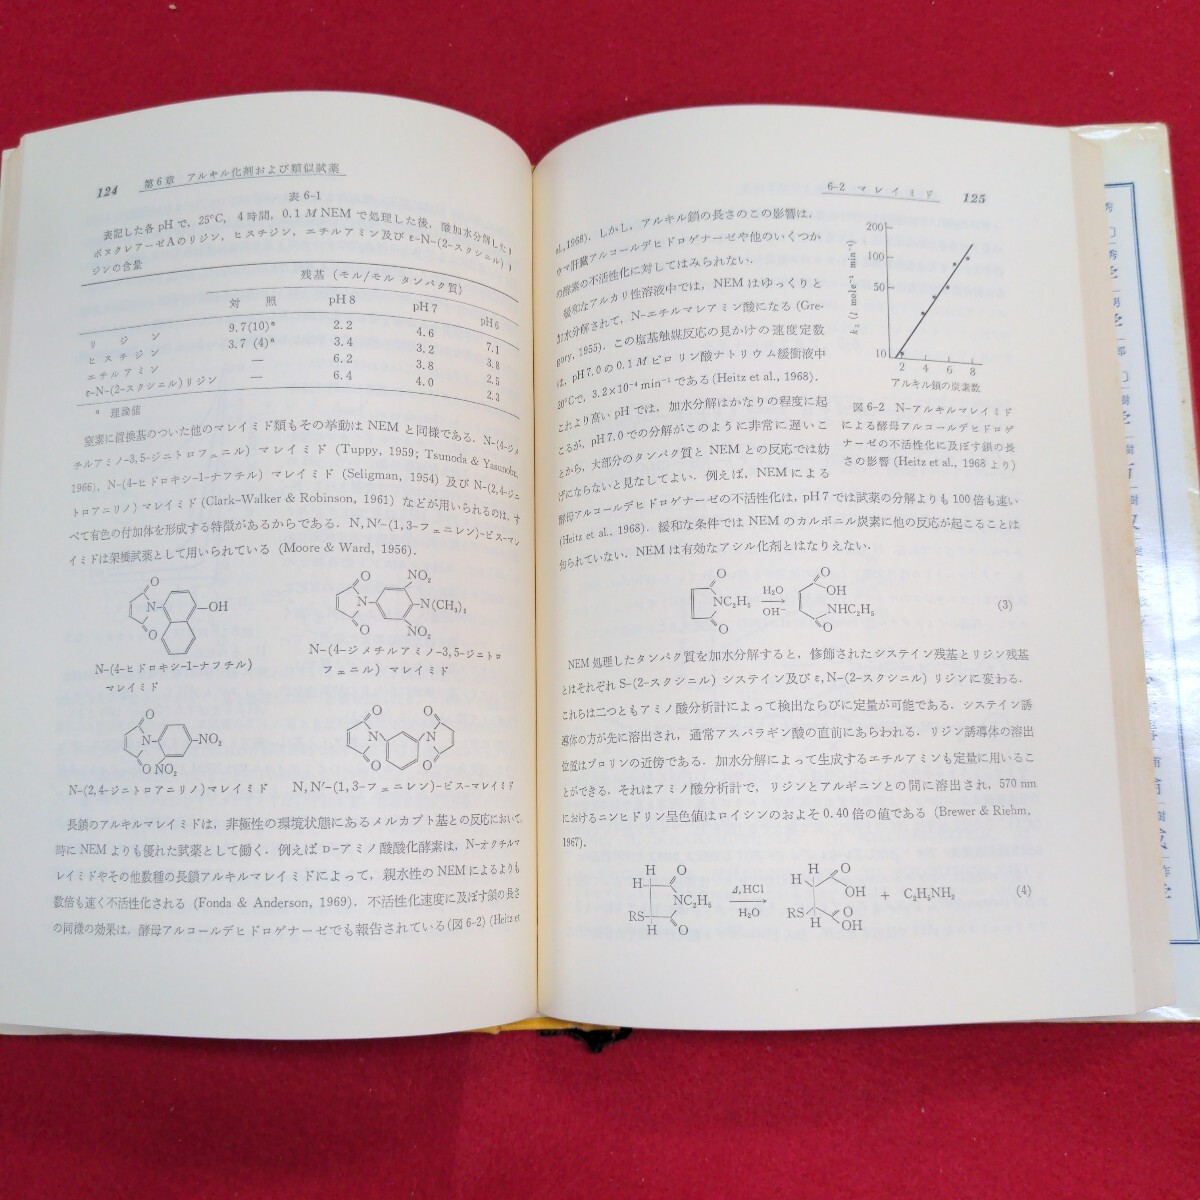 124 第6章 アルキル化剤および類似試薬
表6-1
表記した各pHで，25°C，4時間，0.1 M NEM で処理した後，酸加水分解した
ボヌクレアーゼAのリジン，ヒスチジン，エチルアミン及びε-N-(2-スクシニル)
ジンの含量
残基（モル/モル タンパク質）
対 照 pH8 pH7 pH6
リ ジ ン 9.7(10)ª 2.2 4.6 7.1
ヒスチジン 3.7 (4)ª 3.4 3.2 3.8
エチルアミン — 6.2 3.8 2.5
ε-N-(2-スクシニル)リジン — 6.4 4.0 2.3
ª 理論値
窒素に置換基のついた他のマレイミド類もその挙動は NEM と同様である．N-(4-ジメ
チルアミノ-3,5-ジニトロフェニル) マレイミド (Tuppy, 1959; Tsunoda & Yasunobu,
1966)，N-(4-ヒドロキシ-1-ナフチル) マレイミド (Seligman, 1954) 及び N-(2,4-ジニ
トロアニリノ) マレイミド (Clark-Walker & Robinson, 1961) などが用いられるのは，す
べて有色の付加体を形成する特徴があるからである．N,N′-(1,3-フェニレン)-ビス-マレ
イミドは架橋試薬として用いられている (Moore & Ward, 1956)．
O N OH O
O N O NO₂ N(CH₃)₂ NO₂
N-(4-ヒドロキシ-1-ナフチル)
マレイミド
N-(4-ジメチルアミノ-3,5-ジニトロ
フェニル) マレイミド
O N NO₂ O NO₂
O N O O N O
N-(2,4-ジニトロアニリノ)マレイミド N,N′-(1,3-フェニレン)-ビス-マレイミド
長鎖のアルキルマレイミドは，非極性の環境状態にあるメルカプト基との反応において，
時に NEM よりも優れた試薬として働く．例えば D-アミノ酸酸化酵素は，N-オクチルマ
レイミドやその他数種の長鎖アルキルマレイミドによって，親水性の NEM によるよりも
数倍も速く不活性化される (Fonda & Anderson, 1969)．不活性化速度に及ぼす鎖の長さ
の同様の効果は，酵母アルコールデヒドロゲナーゼでも報告されている(図6-2) (Heitz et
6-2 マレイミド 125
al., 1968)．しかし，アルキル鎖の長さのこの影響は，
ウマ肝臓アルコールデヒドロゲナーゼや他のいくつか
の酵素の不活性化に対してはみられない．
緩和なアルカリ性溶液中では，NEM はゆっくりと
加水分解されて，N-エチルマレアミン酸になる (Gre-
gory, 1955)．この塩基触媒反応の見かけの速度定数
は，pH7.0の0.1 M ピロリン酸ナトリウム緩衝液中
20°Cで，3.2×10⁻⁴ min⁻¹ である(Heitz et al., 1968)．
これより高い pH では，加水分解はかなりの程度に起
こるが，pH7.0での分解がこのように非常に遅いこ
とから，大部分のタンパク質と NEM との反応では妨
げにならないと見なしてよい．例えば，NEM による
酵母アルコールデヒドロゲナーゼの不活性化は，pH7では試薬の分解よりも100倍も速い
(Heitz et al., 1968)．緩和な条件では NEM のカルボニル炭素に他の反応が起こることは
知られていない．NEM は有効なアシル化剤とはなりえない．
200
100
50
10
2 4 6 8
アルキル鎖の炭素数
図6-2 N-アルキルマレイミド
による酵母アルコールデヒドロゲ
ナーゼの不活性化に及ぼす鎖の長
さの影響 (Heitz et al., 1968より)
O NC₂H₅ O H₂O OH⁻ O OH NHC₂H₅ O (3)
NEM 処理したタンパク質を加水分解すると，修飾されたシステイン残基とリジン残基
とはそれぞれ S-(2-スクシニル) システイン及び ε,N-(2-スクシニル) リジンに変わる．
これらは二つともアミノ酸分析計によって検出ならびに定量が可能である．システイン誘
導体の方が先に溶出され，通常アスパラギン酸の直前にあらわれる．リジン誘導体の溶出
位置はプロリンの近傍である．加水分解によって生成するエチルアミンも定量に用いるこ
とができる．それはアミノ酸分析計で，リジンとアルギニンとの間に溶出され，570 nm
におけるニンヒドリン呈色値はロイシンのおよそ 0.40 倍の値である (Brewer & Riehm,
1967)．
H H O NC₂H₅ RS H O Δ,HCl H₂O H H O OH RS H O OH + C₂H₅NH₂ (4)